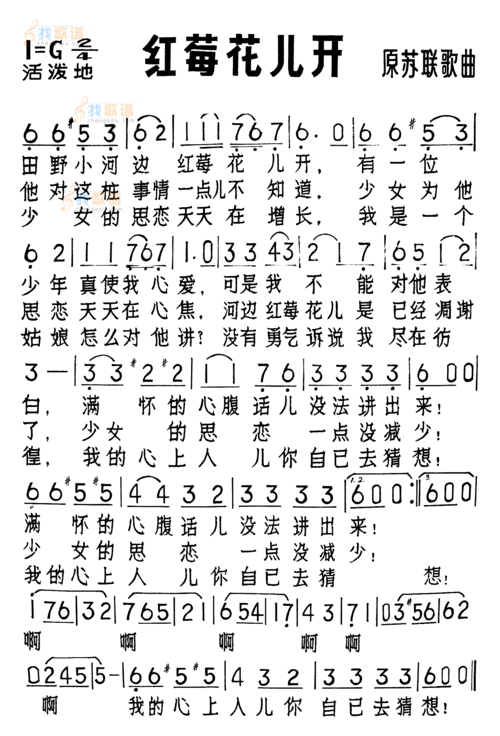 找歌谱
1=G 2/4
红莓花儿开
原苏联歌曲
活泼地
找歌谱
6 6 #5 3 | 6 2 | 1 1 1 7 6 7 | 6· 0 | 6 6 #5 3 |
田野小河边 红莓花儿开, 有一位
他对这桩事情一点儿不知道, 少女为他
少女的思恋天天在增长, 我是一个
6 2 | 1 1 7 6 7 | 1· 0 | 3 3 4 3 | 2 1 7 | 6 7 1 |
少年真使我心爱, 可是我不能对他表
思恋天天在心焦, 河边红莓花儿是已经凋谢
姑娘怎么对他讲? 没有勇气诉说我尽在彷
3 — | 3 3 #2 #2 | 1 1 7 6 | 3 3 3 3 | 6 0 0 |
白, 满怀的心腹话儿没法讲出来!
了, 少女的思恋一点没减少!
徨, 我的心上人儿你自已去猜想!
6 6 #5 #5 | 4 4 3 2 | 3 3 3 3 | 1.2. 6 0 0 :‖ 3. 6 0 0 |
满怀的心腹话儿没法讲出来!
少女的思恋一点没减少!
我的心上人儿你自已去猜想!
1 7 6 | 3 2 | 7 6 5 | 2 1 | 6 5 4 | 1 7 | 4 3 | 0 3 #5 6 | 6 2
啊 啊 啊 啊啊
0 2 4 5 | 5 - | 6 6 #5 #5 | 4 4 3 2 | 3 3 3 3 | 6 0 0 ‖
啊 我的心上人儿你自已去猜想!